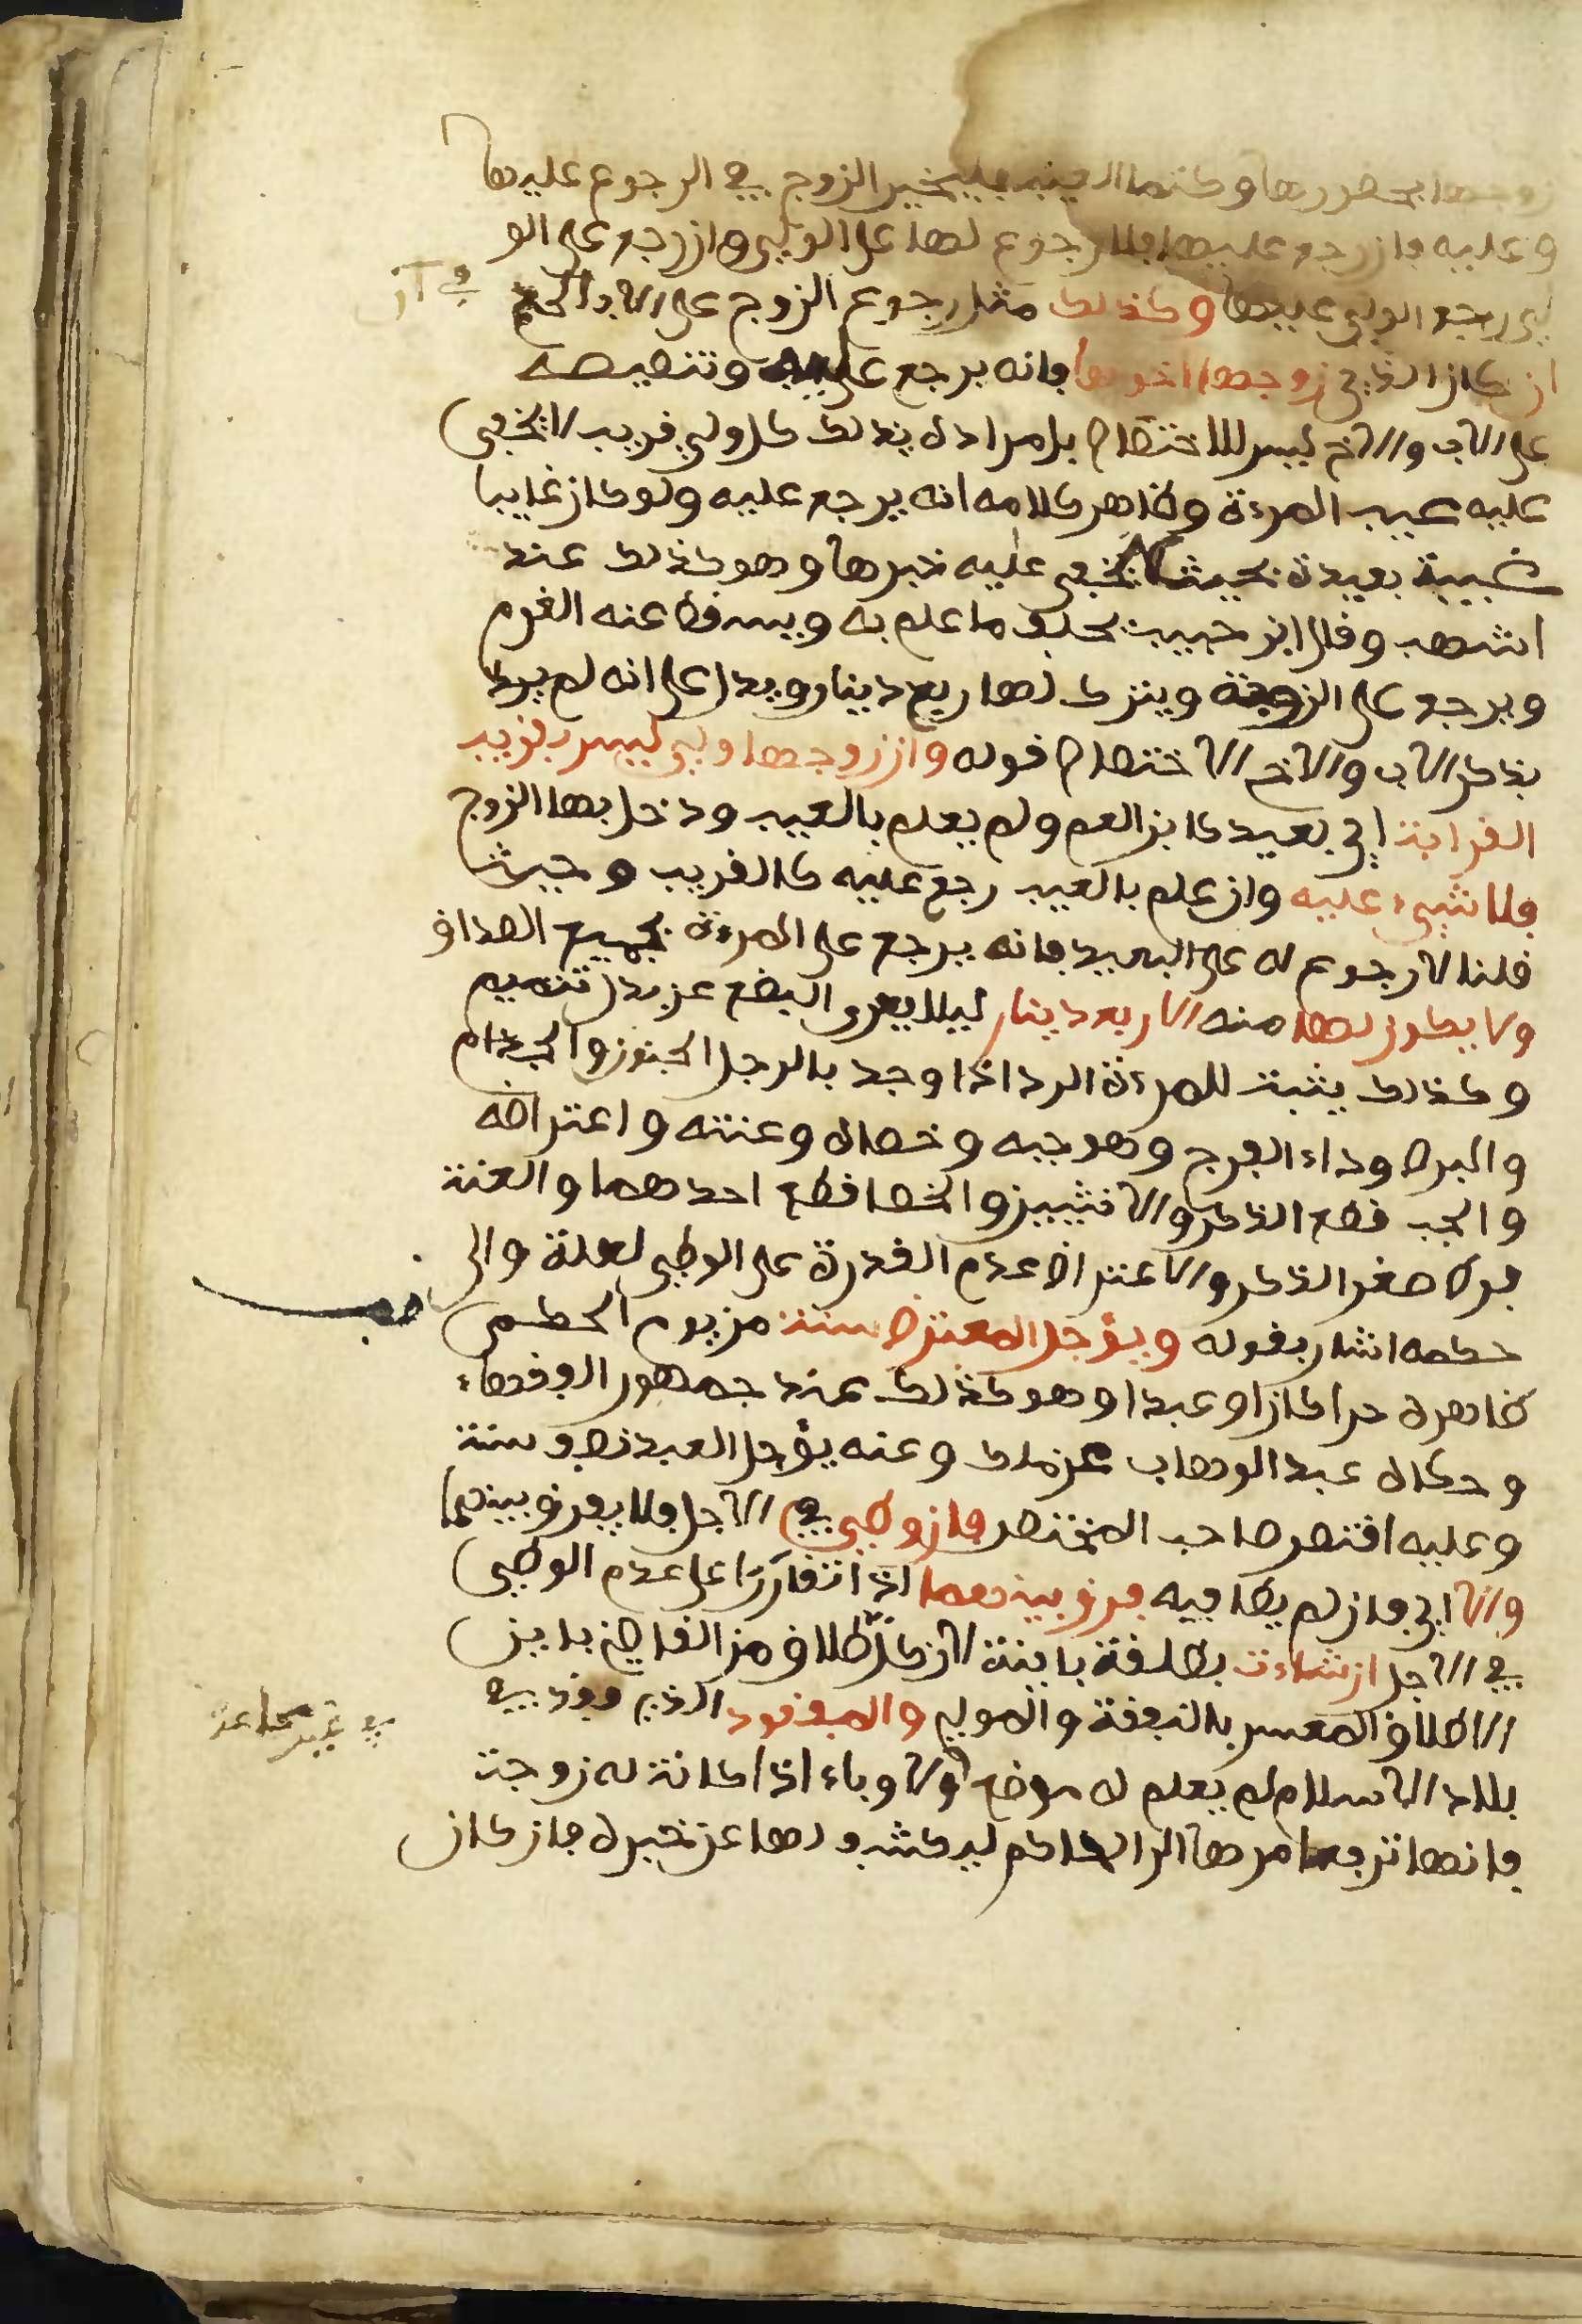 زوجها بحضورها وكتما العيب فليخير الزوج في الرجوع عليها
وعليه فان رجع عليها فلا رجوع لها على الولي وان رجع على الو
لي رجع الولي عليها وكذلك مثل رجوع الزوج على الاب الحكم
ان كان الذي زوجها اخوها فانه يرجع عليه وتنصيصه
على الاب والاخ ليس للاختصاص بل مراده بذلك كل ولي قريب لا يخفى
عليه عيب المرءة وظاهر كلامه انه يرجع عليه ولو كان غايبا
غيبة بعيدة بحيث لا يخفى عليه خبرها وهو كذلك عند
اشهب وقال ابن حبيب يحلف ما علم به ويسقط عنه الغرم
ويرجع على الزوجة ويترك لها ربع دينار ويدل على انه لم يرد
بذكر الاب والاخ الاختصاص قوله وان زوجها ولي ليس بقريب
القرابة اي بعيد كابن العم ولم يعلم بالعيب ودخل بها الزوج
فلا شيء عليه وان علم بالعيب رجع عليه كالقريب وحيث
قلنا لا رجوع له على البعيد فانه يرجع على المرءة بجميع الصداق
ولا يكون لها منه الا ربع دينار ليلا يعرى البضع عن بدل تتميم
وكذلك يثبت للمرءة الرد اذا وجد بالرجل الجنون والجذام
والبرص وداء الفرج وهو جبه وخصاه وعنته واعتراضه
والجب قطع الذكر والانثيين والخصا قطع احدهما والعنة
فرط صغر الذكر والاعتراض عدم القدرة على الوطي لعلة والى
حكمه اشار بقوله ويؤجل المعترض سنة من يوم الحكم
ظاهره حرا كان او عبدا وهو كذلك عند جمهور الفقهاء
وحكاه عبد الوهاب عن مالك وعنه يؤجل العبد نصف سنة
وعليه اقتصر صاحب المختصر فان وطي في الاجل فلا يفرق بينهما
والا اي فان لم يطا فيه فرق بينهما اذا تقاررا على عدم الوطي
في الاجل ان شاءت بطلقة باينة لان كل طلاق من القاضي باين
الا طلاق المعسر بالنفقة والمولي والمفقود الذي فقد في
بلاد الاسلام لم يعلم له موضع ولا وباء اذا كانت له زوجة
فانها ترفع امرها الى الحاكم ليكشف لها عن خبره فان كان
في غير مجاعة